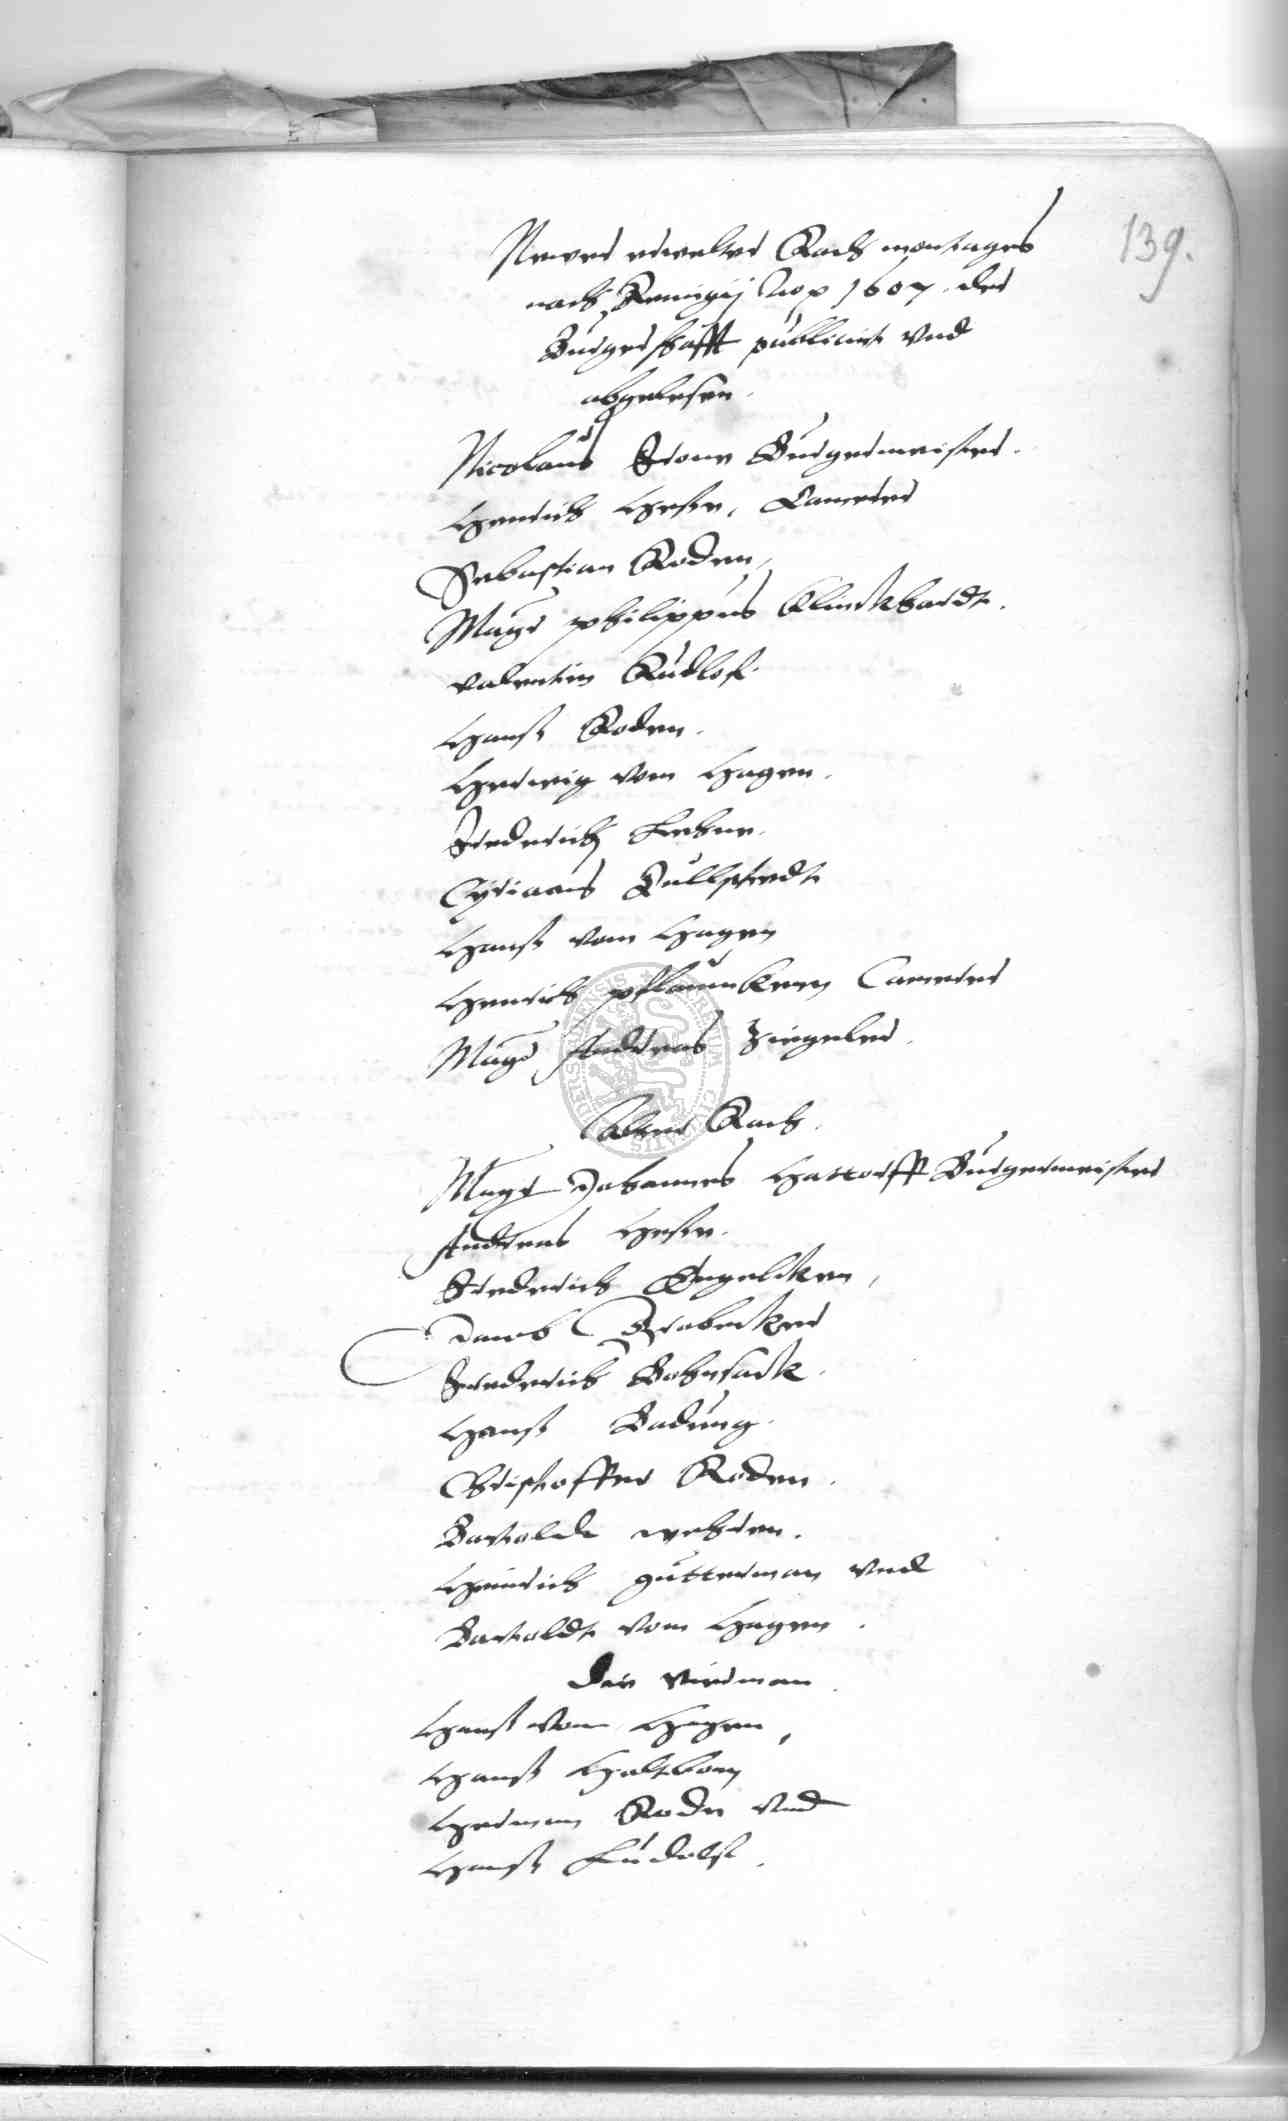 139.
Newer erwelter Rath montages
nach Remigij Anno 1607. der
Burgerschafft publicirt vnd
abgelesen.
Nicolaus Frone Burgermeister.
Henrich Hesse, Camerer
Sebastian Roden,
Magr philippus Klinckhardt.
valentin Rudloff.
Hanß Roden.
Herwig vom Hagen.
Frederich
Ciriacus Dullstedt
Hanß vom Hagen
Henrich pflaumbkern Camerer
Magr Andreas Ziegeler.
Alter Rath.
Magr Johannes Hattorff Burgermeister
Andreas Hesse.
Frederich Engelcken,
Jacob Brabecker
Frederich Bohnsack.
Hanß Badung.
Christoffer Roden.
Bartoldt wehren.
Heinrich gutterman vnd
Bartoldt vom Hagen.
Die virman
Hanß vom Hagen,
Hanß
Herman Rode vnd
Hanß Ludolff.